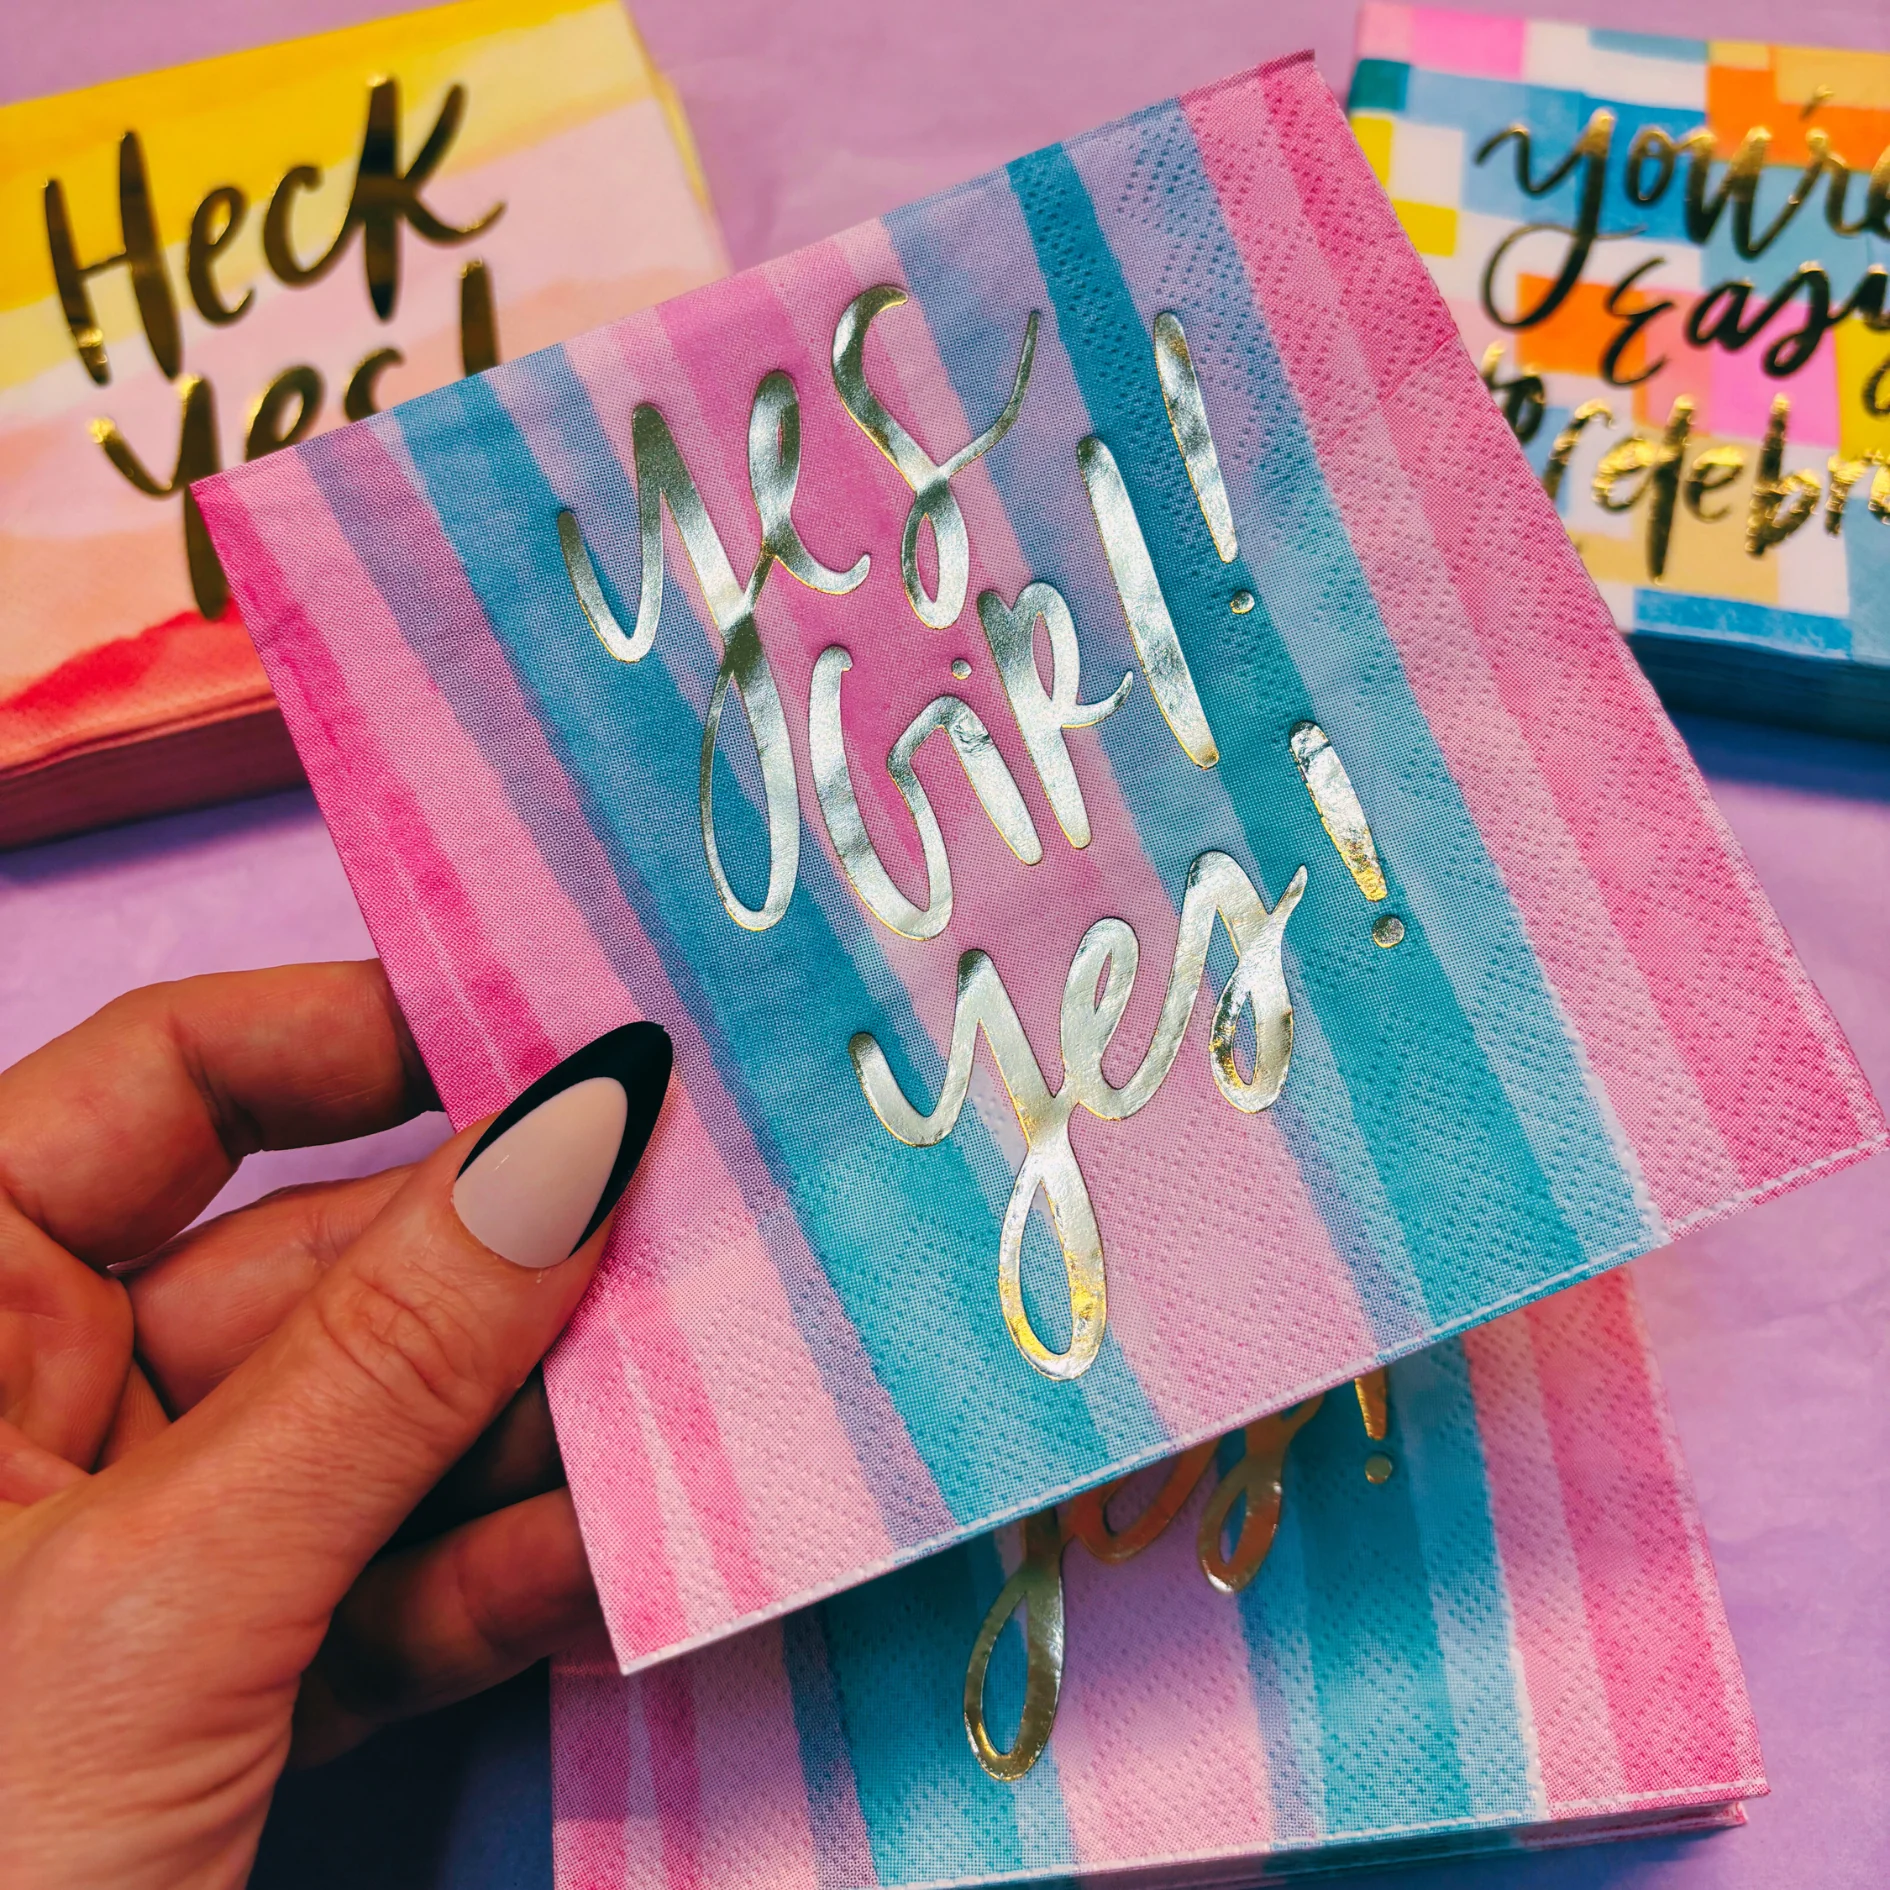 Heck
yes!
yes
Girl!
yes!
you're
Easy
to celebra
yes!